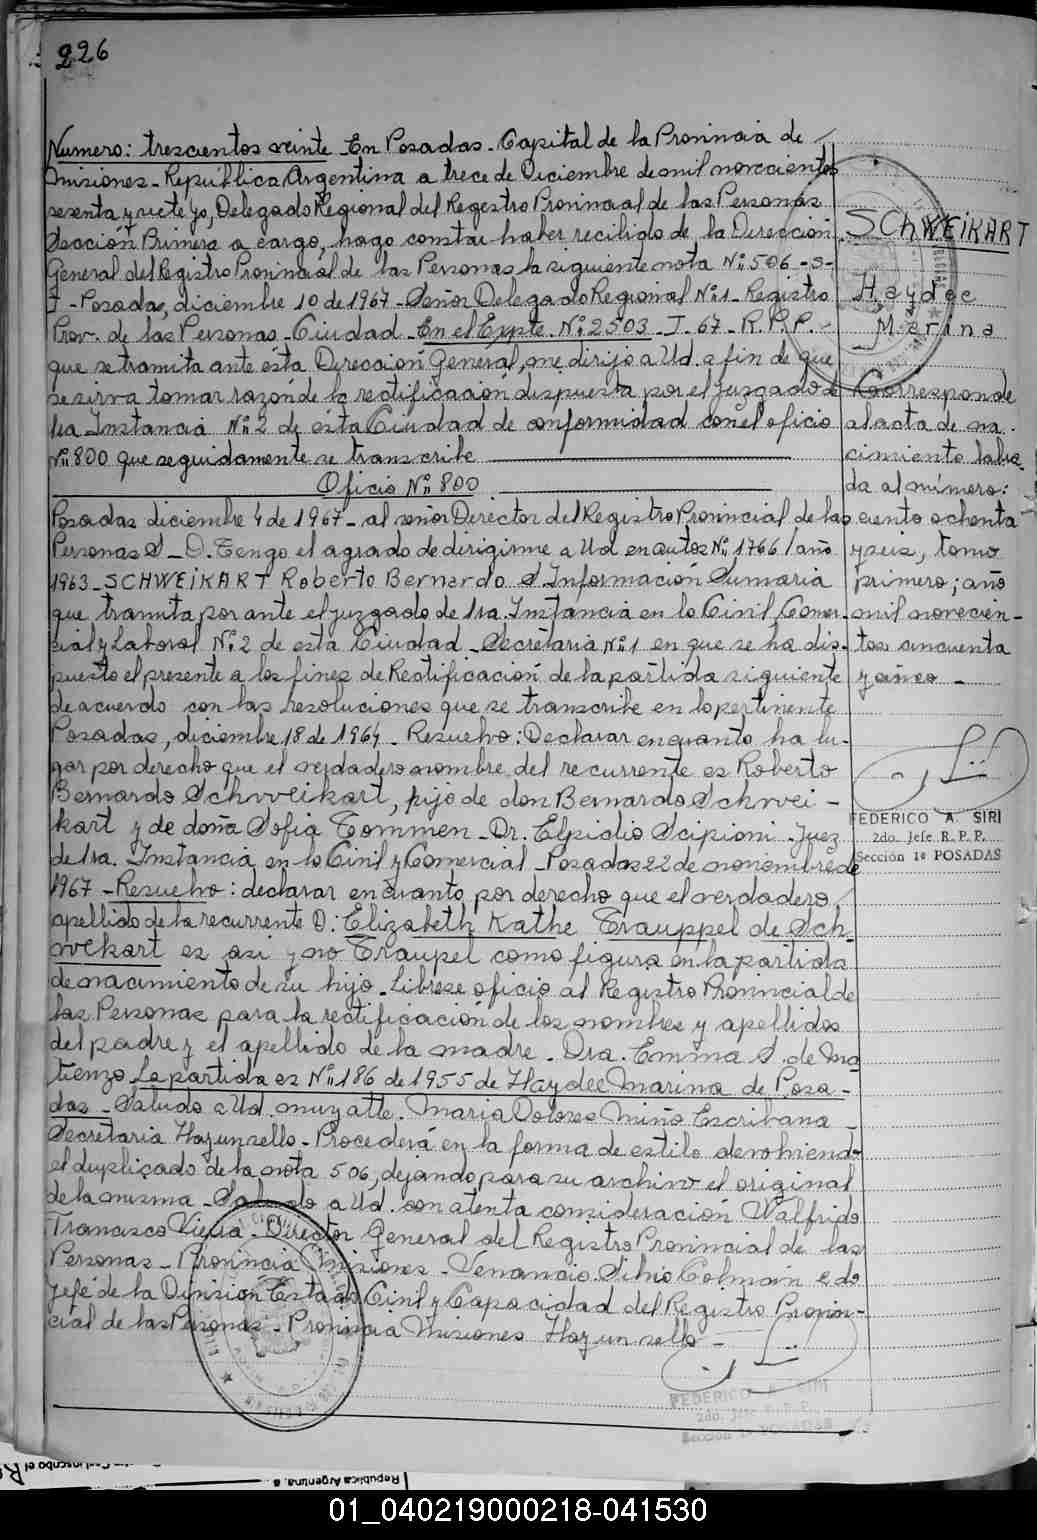 226
Numero: trescientos veinte En Posadas - Capital de la Provincia de
Misiones - República Argentina a trece de Diciembre de mil novecientos
sesenta y siete yo, Delegado Regional del Registro Provincial de las Personas
Sección Primera a cargo, hago constar haber recibido de la Dirección
General del Registro Provincial de las Personas la siguiente nota Nº 506 - S-
J - Posadas, diciembre 10 de 1967 - Señor Delegado Regional Nº 1 - Registro
Prov. de las Personas - Ciudad - En el Expte. Nº 2503 - J - 67 - R.P.P. -
que se tramita ante ésta Dirección General, me dirijo a Ud. a fin de que
se sirva tomar razón de la rectificación dispuesta por el Juzgado de
1ra Instancia Nº 2 de ésta Ciudad de conformidad con el oficio
Nº 800 que seguidamente se transcribe
Oficio Nº 800
Posadas diciembre 4 de 1967 - al señor Director del Registro Provincial de las
Personas S - D. Tengo el agrado de dirigirme a Ud en autos Nº 1766 / año
1963 - SCHWEIKART Roberto Bernardo S Información Sumaria
que tramita por ante el juzgado de 1ra. Instancia en lo Civil, Comer-
cial y Laboral Nº 2 de esta Ciudad - Secretaria Nº 1 en que se ha dis-
puesto el presente a los fines de Rectificación de la partida siguiente
de acuerdo con las resoluciones que se transcribe en lo pertinente
Posadas, diciembre 18 de 1964 - Resuelvo: Declarar en cuanto ha lu-
gar por derecho que el verdadero nombre del recurrente es Roberto
Bernardo Schweikart, hijo de don Bernardo Schwei-
kart y de doña Sofia Tommen - Dr. Elpidio Scipioni - Juez
de 1ra. Instancia en lo Civil y Comercial - Posadas 22 de noviembre de
1967 - Resuelvo: declarar en cuanto por derecho que el verdadero
apellido de la recurrente D: Elizabeth Kathe Trauppel de Sch-
weikart es asi y no Traupel como figura en la partida
de nacimiento de su hijo. Librese oficio al Registro Provincial de
las Personas para la rectificación de los nombres y apellidos
del padre y el apellido de la madre. Dra. Emma S. de Ma
tienzo La partida es Nº 186 de 1955 de Haydee Marina de Posa-
das - Saludo a Ud. muy atte. Maria Dolores Miño Escribana -
Secretaria Hay un sello - Procederá en la forma de estilo devolviendo
el duplicado de la nota 506, dejando para su archivo el original
de la misma - Saludo a Ud. con atenta consideración Walfrido
Francisco Vieira - Director General del Registro Provincial de las
Personas - Provincia Misiones - Venancio Silvio Colman e.do
Jefe de la División Estado Civil y Capacidad del Registro Provin-
cial de las Personas - Provincia Misiones Hay un sello -
SCHWEIKART
Haydee
Marina
Corresponde
al acta de na-
cimiento labra-
da al número:
ciento ochenta
y seis, tomo
primero; año
mil novecien-
tos cincuenta
y cinco -
FEDERICO A SIRI
2do. Jefe R. P. P.
Sección 1ª POSADAS
FEDERICO A SIRI
2do. Jefe R. P. P.
Sección 1ª POSADAS
Republica Argentina, a
01_040219000218-041530